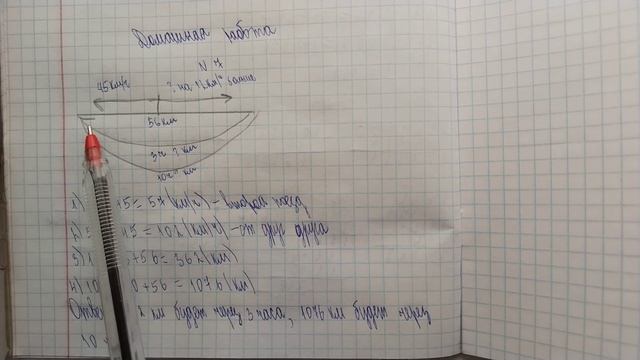 Домашная работа
N 7
45км/ч ? на 12км/ч
56 км
3ч ? км
10ч ? км
1) 45=57(км/ч) - второй поезд
2) 45=102(км/ч) - от друг друга
3) +56=362(км)
4) 10 0+56=1076(км)
км будет через 3 часа, 1076 км будет через
10